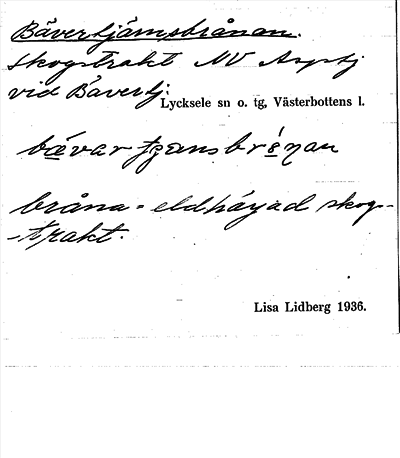 Bävertjärnsbrånan.
Skogstrakt NV Asptj
vid Bävertj.
Lycksele sn o. tg, Västerbottens l.
bråna = eldhärjad skogs-
-trakt.
Lisa Lidberg 1936.